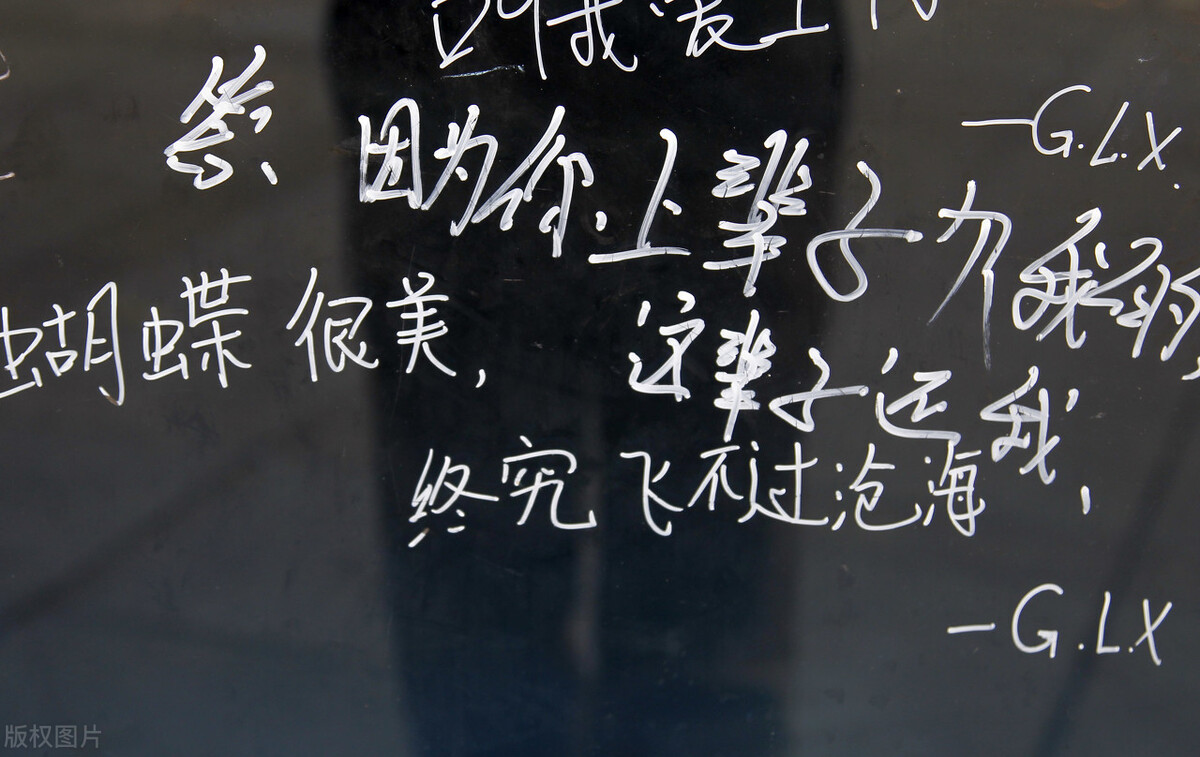 我爱上
—G.L.X.
答、因为你.上辈子我的
蝴蝶很美,
这辈子还我,
终究飞不过沧海
—G.L.X
版权图片